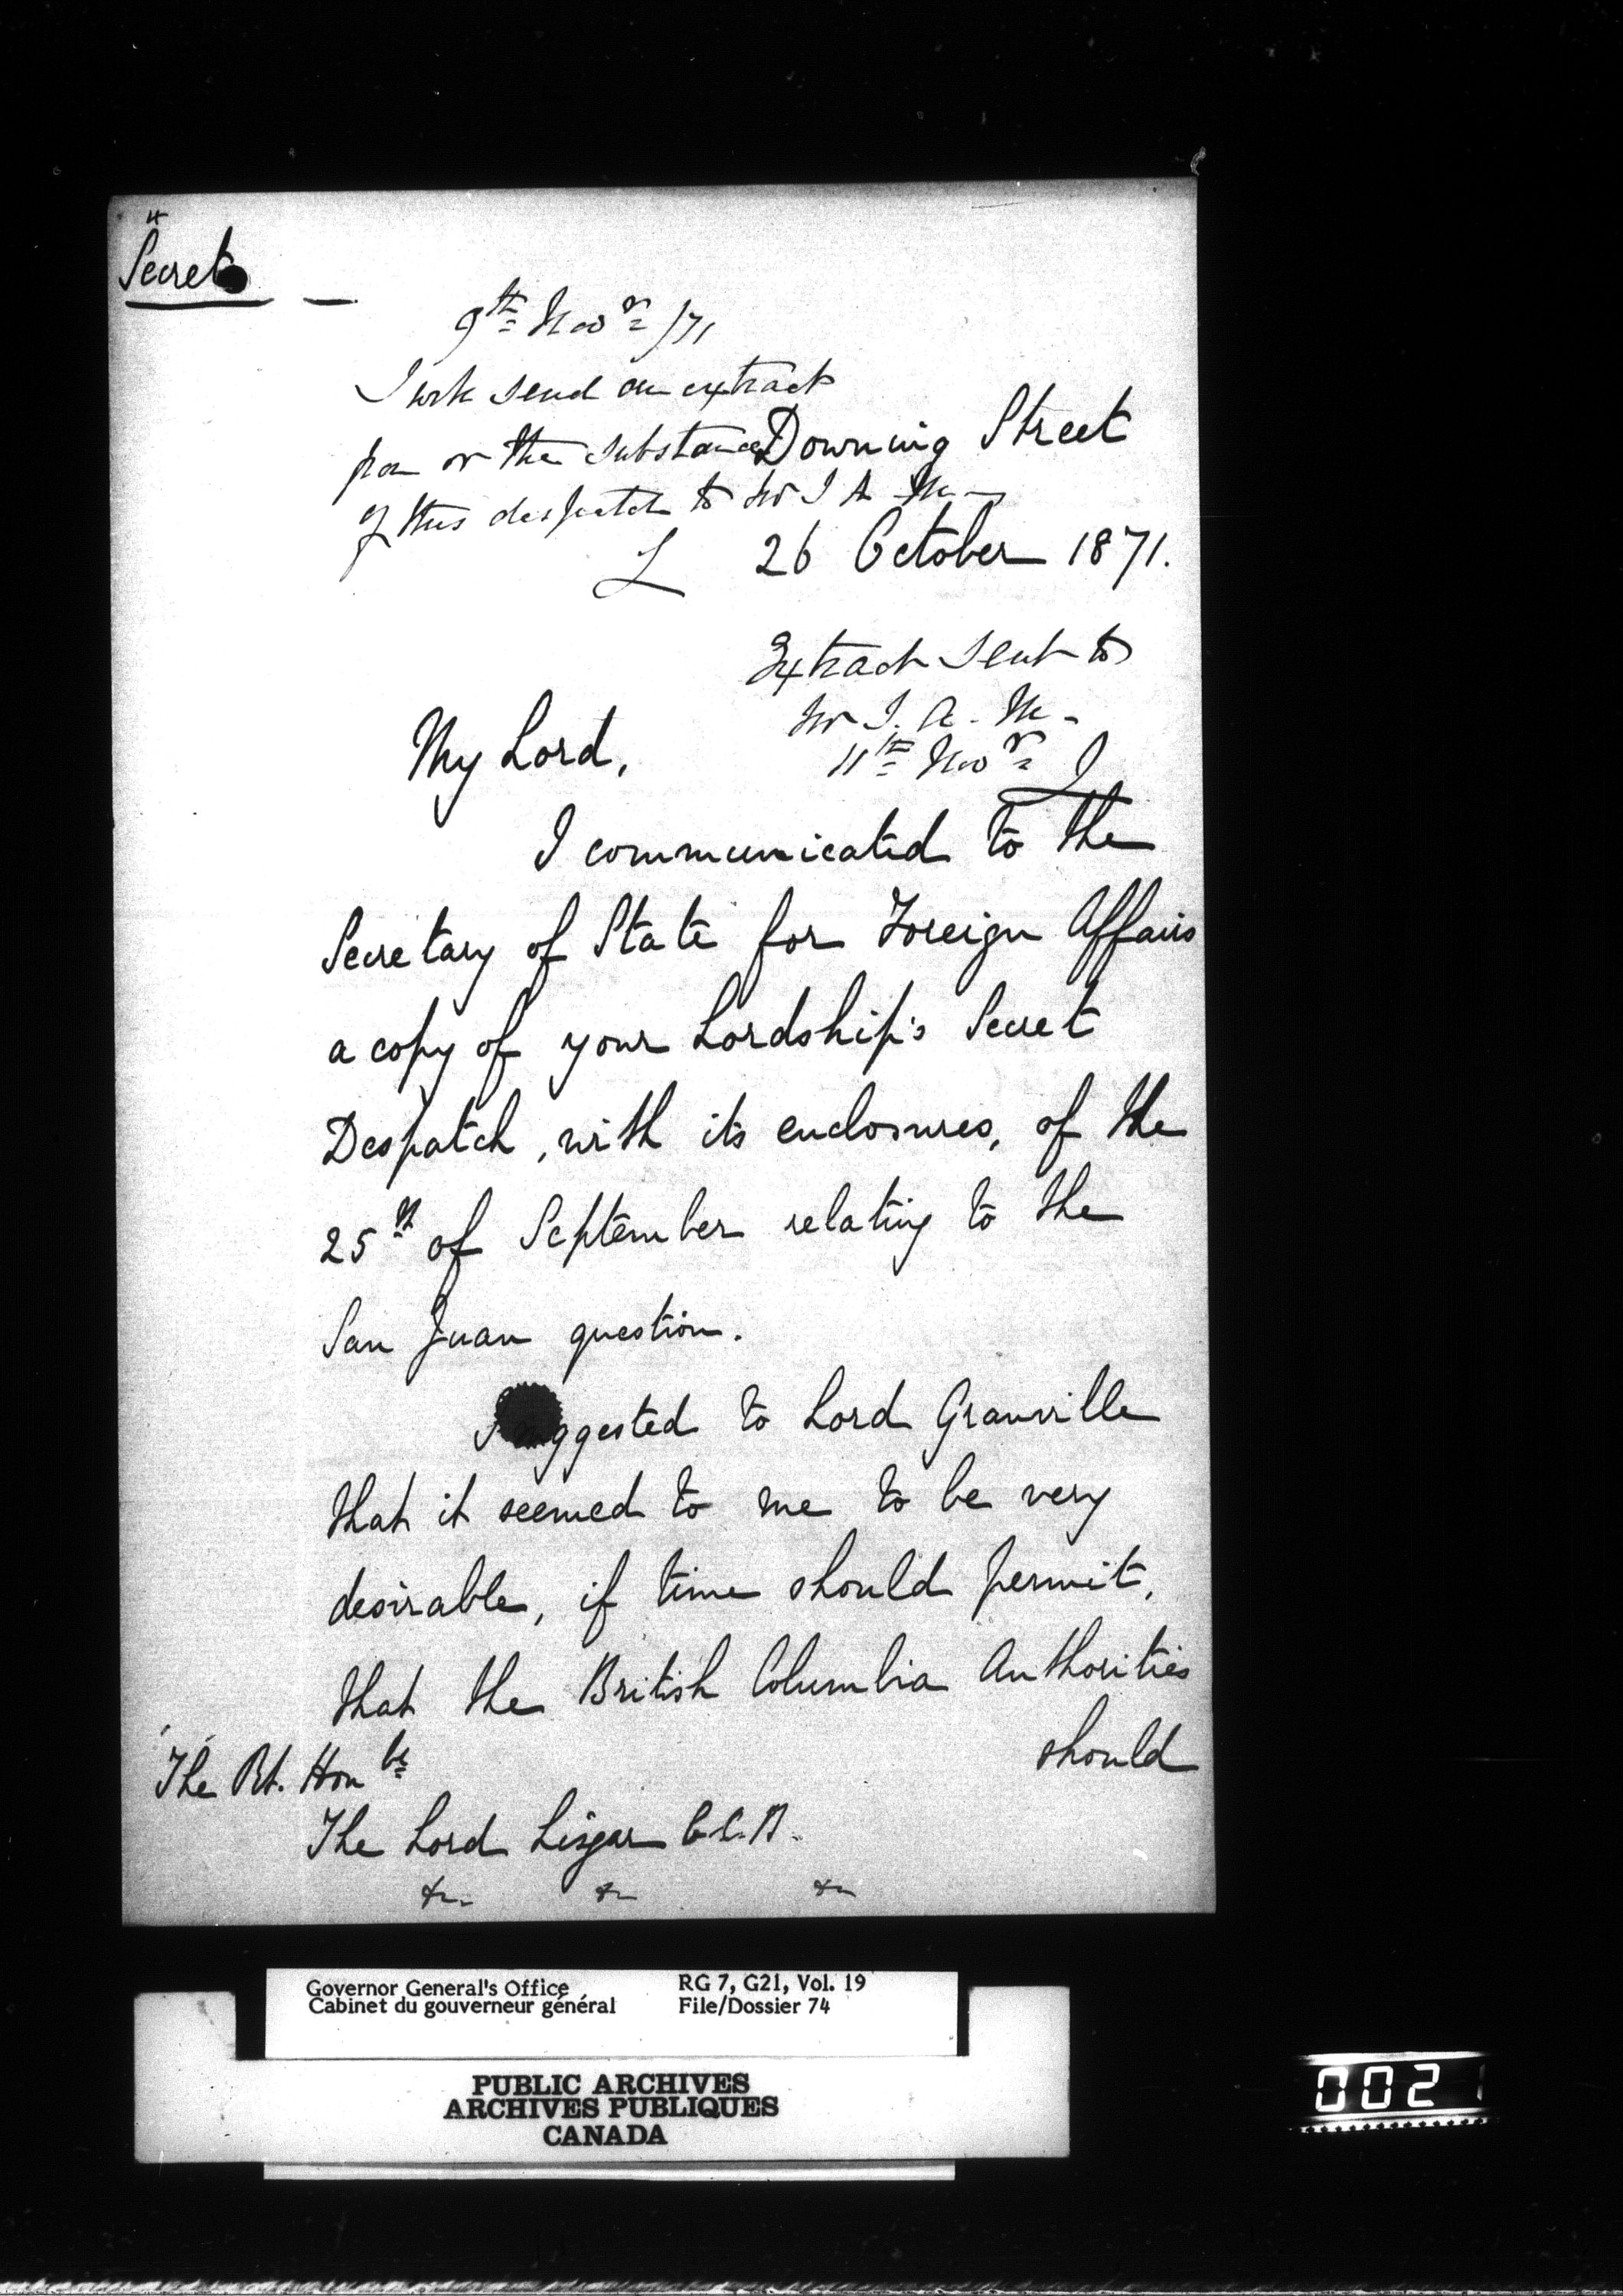 Secret
9th Novr /71
I will send an extract
from or the substance
of this despatch to Sir J A M
L
Downing Street
26 October 1871.
Extract sent to
Sir J. A. M.
11th Novr L
My Lord,
I communicated to the
Secretary of State for Foreign Affairs
a copy of your Lordship's Secret
Despatch, with its enclosures, of the
25th of September relating to the
San Juan question.
I suggested to Lord Granville
that it seemed to me to be very
desirable, if time should permit,
that the British Columbia Authorities
should
The Rt. Honble
The Lord Lisgar G.C.B.
&c &c &c
Governor General's Office
Cabinet du gouverneur général
RG 7, G21, Vol. 19
File/Dossier 74
PUBLIC ARCHIVES
ARCHIVES PUBLIQUES
CANADA
002